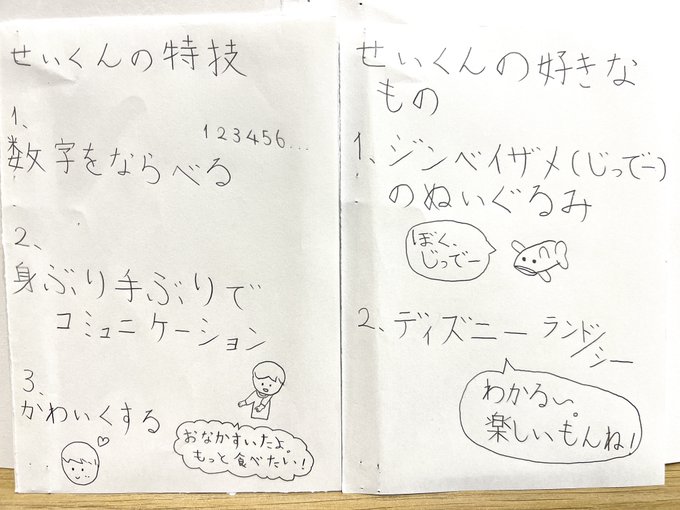 せいくんの特技
1、
1 2 3 4 5 6 …
数字をならべる
2、
身ぶり手ぶりで
コミュニケーション
3、
かわいくする
おなかすいたよ。
もっと食べたい!
せいくんの好きな
もの
1、ジンベイザメ(じってー)
のぬいぐるみ
ぼく、
じってー
2、ディズニーランド/シー
わかるぅ。
楽しいもんね!